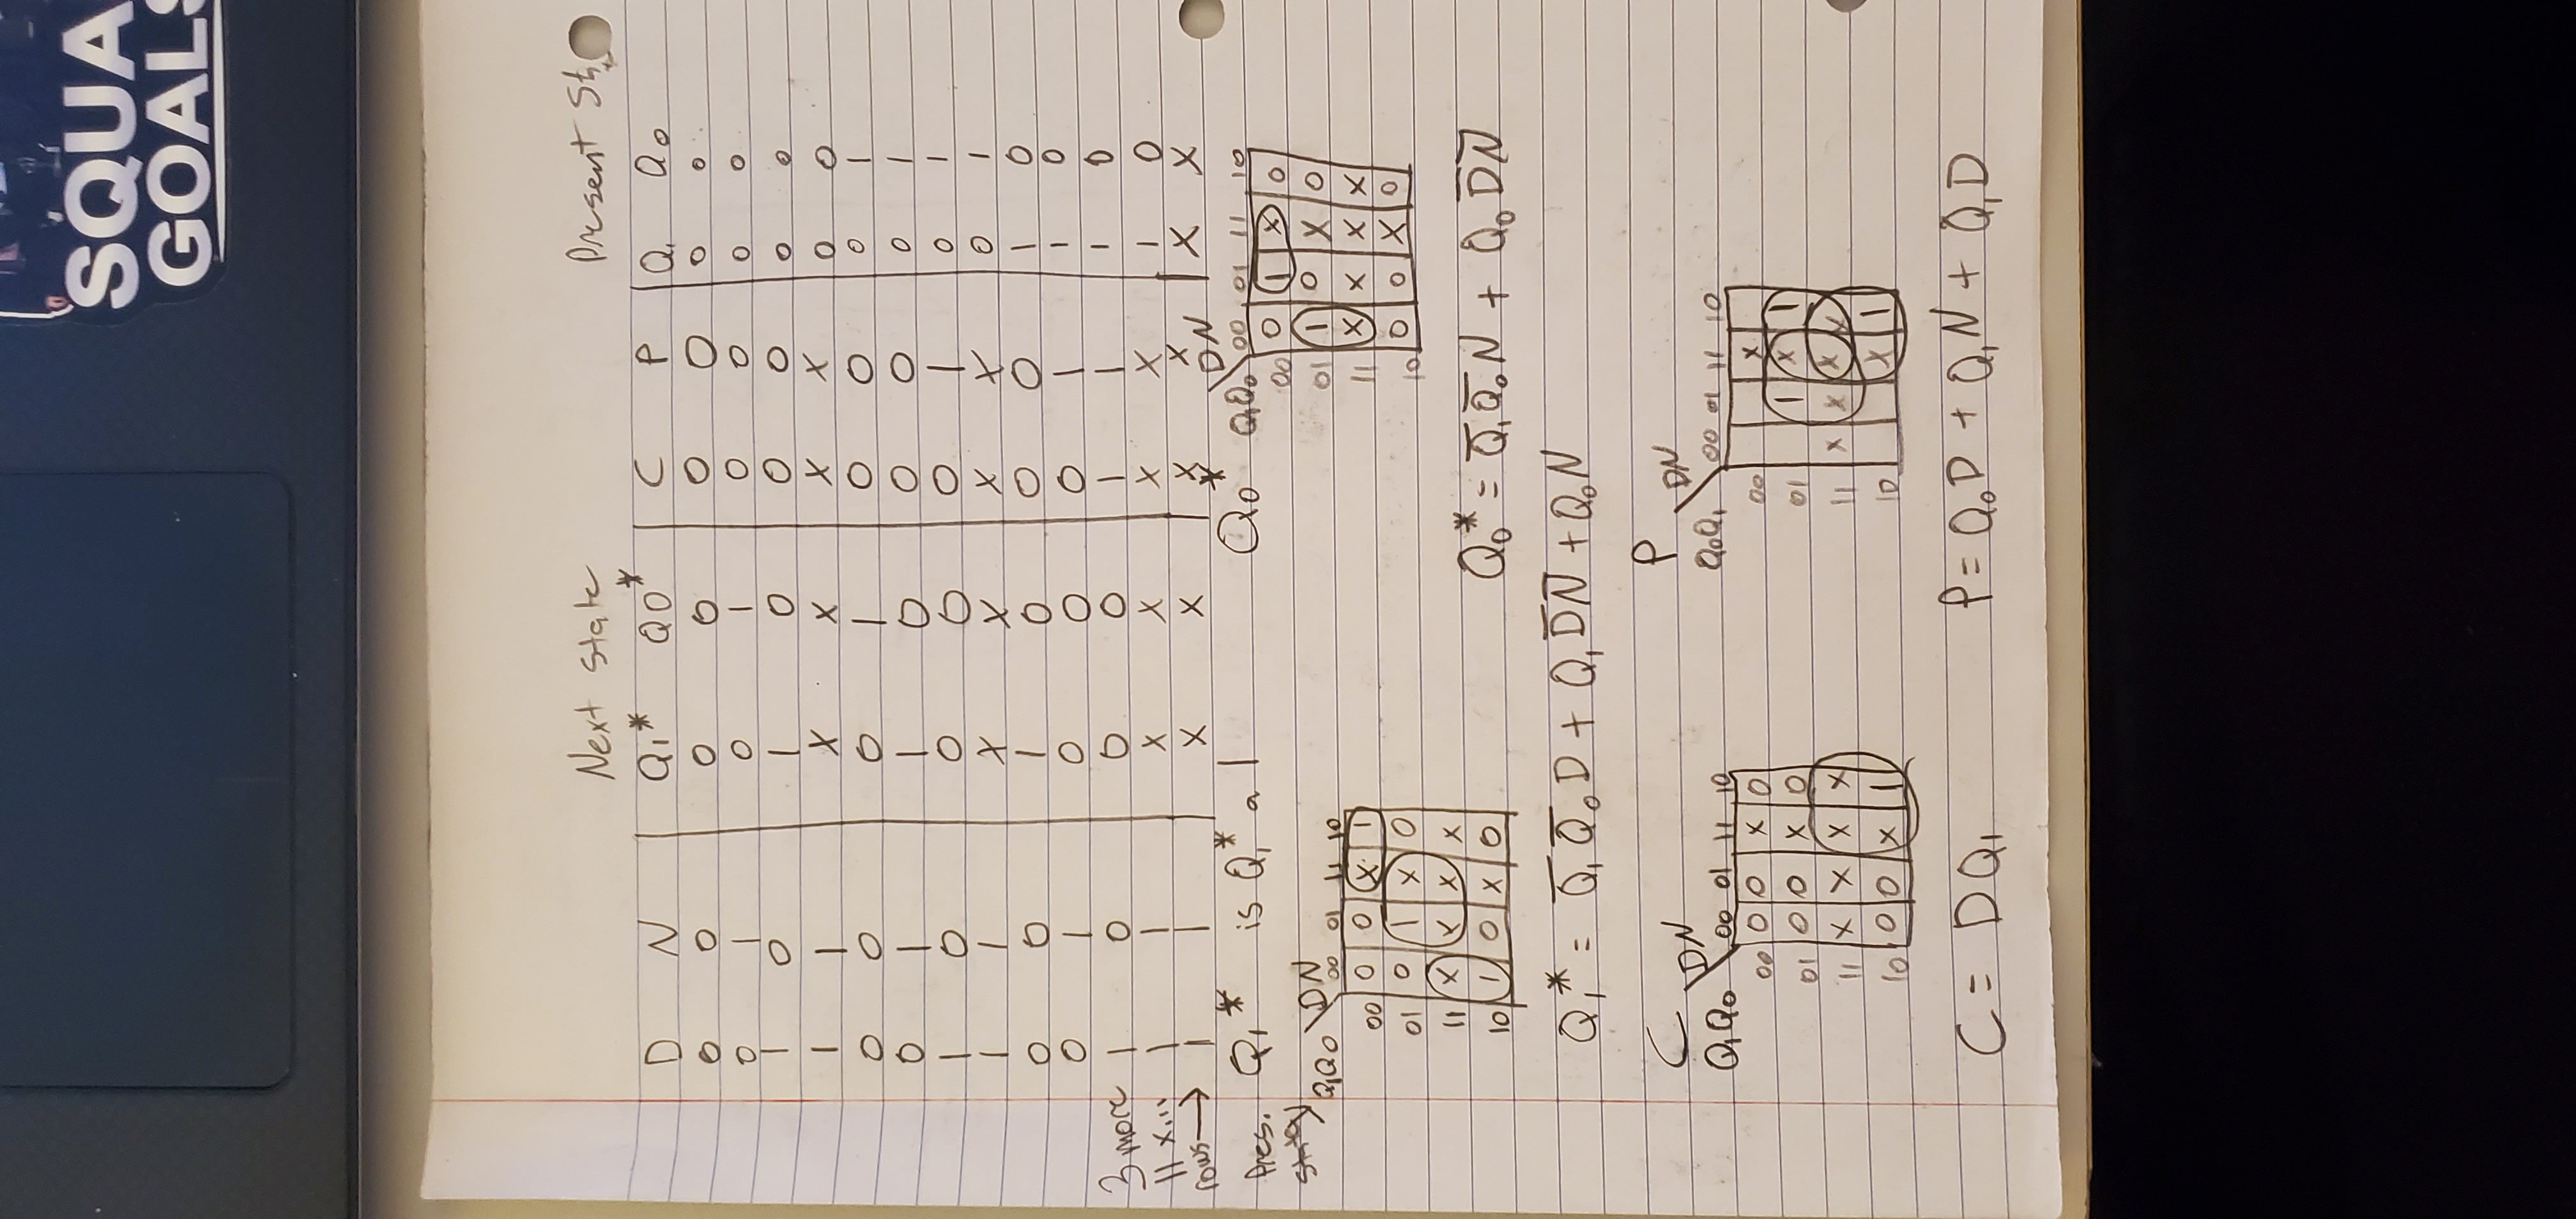 SQUA
GOALS
Next state Present St
D N Q₁* Q0* C P Q₁ Q₀
0 0 0 0 0 0 0 0
0 1 0 1 0 0 0 0
1 0 1 0 0 0 0 0
1 1 X X X X 0 0
0 0 0 1 0 0 0 1
0 1 1 0 0 0 0 1
1 0 0 0 0 1 0 1
1 1 X X X X 0 1
0 0 1 0 0 0 1 0
0 1 0 0 0 1 1 0
3 more 1 0 0 0 1 1 1 0
11 x... 1 1 X X X X 1 0
rows→ 1 1 X X X X X X
Pres. Q₁* is Q₁* a 1
Q₁Q₀ DN
00 01 11 10
00 0 0 X 1
01 0 1 X 0
11 X X X X
10 1 0 X 0
Q₁* = Q̅₁Q̅₀D + Q₁D̅N̅ + Q₀N
Q₀*
Q₁Q₀ DN
00 01 11 10
00 0 1 X 0
01 1 0 X 0
11 X X X X
10 0 0 X 0
Q₀* = Q̅₁Q̅₀N + Q₀D̅N̅
C
Q₁Q₀ DN
00 01 11 10
00 0 0 X 0
01 0 0 X 0
11 X X X X
10 0 0 X 1
C = DQ₁
P
Q₀Q₁ DN
00 01 11 10
00 X
01 1 X 1
11 X X X X
10 X 1
P = Q₀D + Q₁N + Q₁D